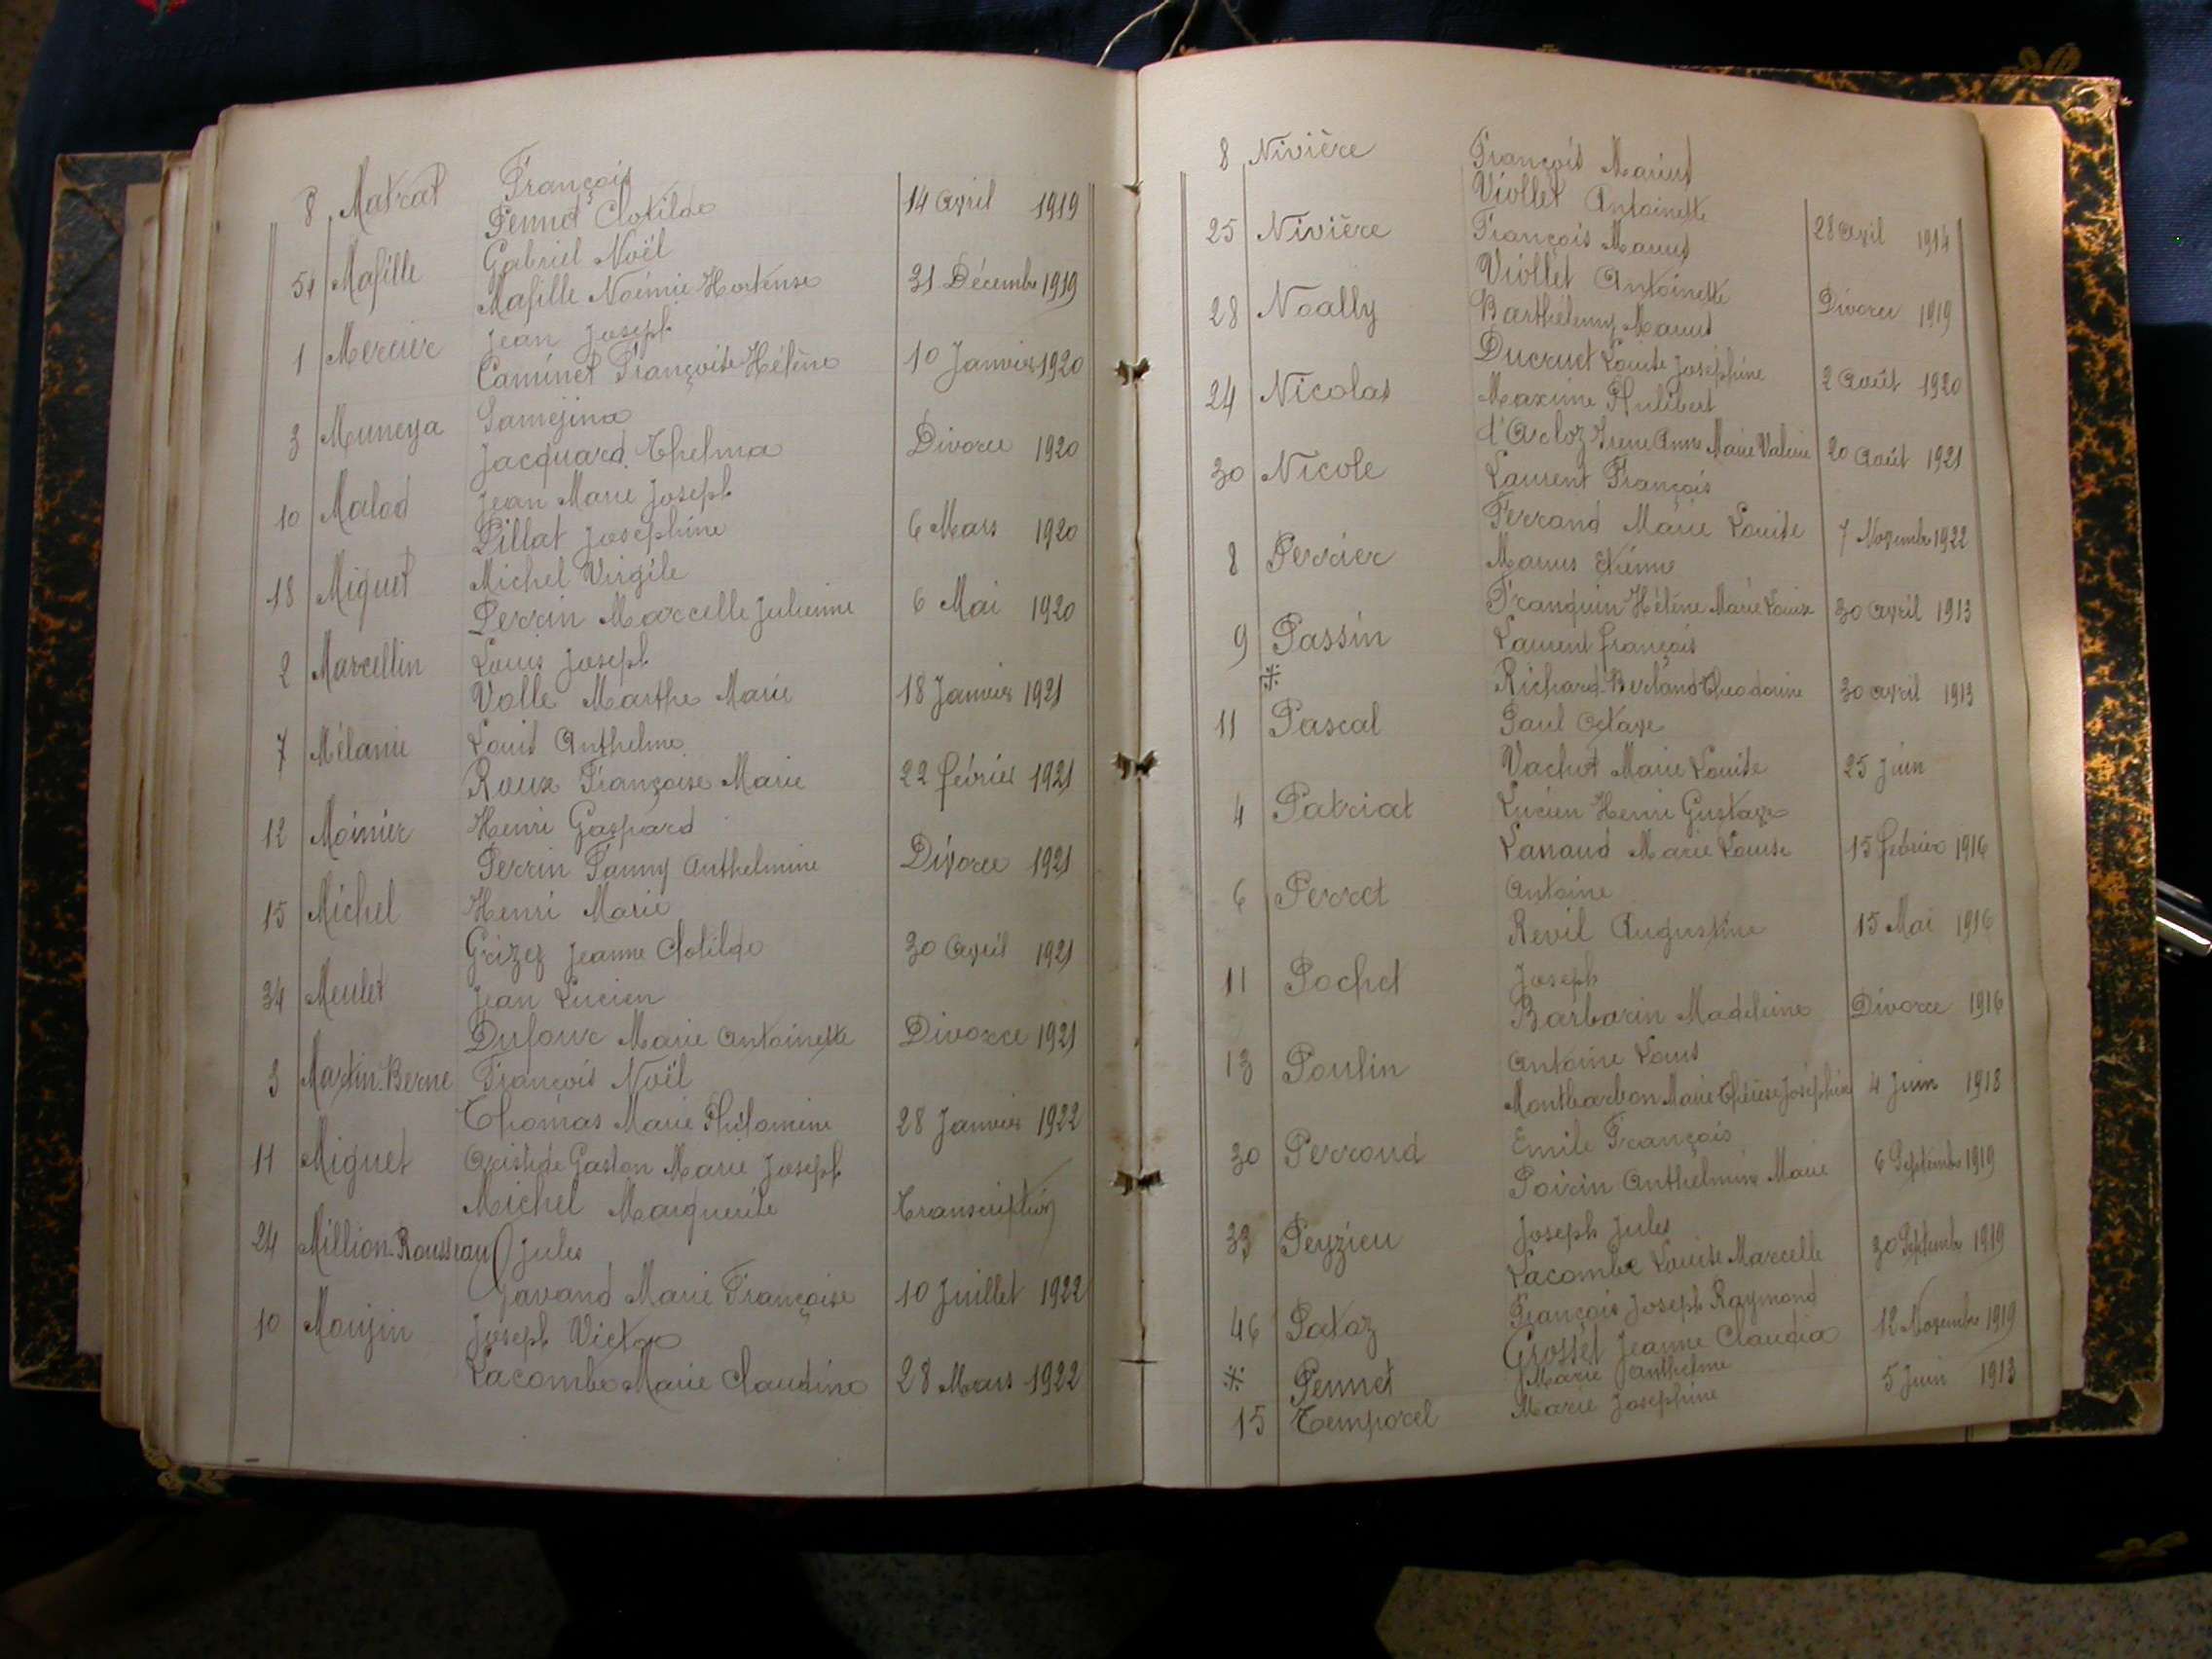 8 Matrat François
Pennet Clotilde 14 Avril 1919
51 Mafille Gabriel Noël
Mafille Noémie Hortense 31 Décembre 1919
1 Mercier Jean Joseph
Caminet Françoise Hélène 10 Janvier 1920
3 Muneya Samejina
Jacquard Thelma Divorce 1920
10 Malod Jean Marie Joseph
Pillat Joséphine 6 Mars 1920
18 Miguet Michel Virgile
Perrin Marcelle Julienne 6 Mai 1920
2 Marcellin Louis Joseph
Volle Marthe Marie 18 Janvier 1921
7 Mélanie Louis Anthelme
Roux Françoise Marie 22 février 1921
12 Moinier Henri Gaspard
Perrin Fanny Anthelmine Divorce 1921
15 Michel Henri Marie
Grizez Jeanne Clotilde 30 Avril 1921
34 Meulet Jean Lucien
Dufour Marie Antoinette Divorce 1921
3 Martin-Berne François Noël
Thomas Marie Philomine 28 Janvier 1922
11 Miguet Aristide Gaston Marie Joseph
Michel Marguerite Transcription
24 Million-Rousseau Jules
Gavand Marie Françoise 10 Juillet 1922
10 Moujin Joseph Victor
Lacombe Marie Claudine 28 Mars 1922
8 Nivière François Marius
Viollet Antoinette 28 avril 1914
25 Nivière François Marius
Viollet Antoinette Divorce 1919
28 Noally Barthélemy Marius
Ducruet Louise Joséphine 2 Août 1920
24 Nicolas Maxime Philibert
d'Arcloz Irene Anne Marie Valerie 20 Août 1921
30 Nicole Laurent François
Ferrand Marie Louise 7 Novembre 1922
8 Perrier Marius Etienne
Franquin Hélène Marie Louise 30 avril 1913
9 Passin Laurent françois
※ Richard-Berland Theodorine 30 avril 1913
11 Pascal Paul Octave
Vachot Marie Louise 25 Juin
4 Patriat Lucien Henri Gustave
Lanaud Marie Louise 15 février 1916
6 Perret Antoine
Revil Augustine 15 Mai 1916
11 Pochet Joseph
Barbarin Madeleine Divorce 1916
13 Poulin Antoine Louis
Montbarbon Marie Thérèse Joséphine 4 Juin 1918
30 Perroud Emile François
Poirin Anthelmine Marie 6 Septembre 1919
33 Peyzieu Joseph Jules
Lacombe Louise Marcelle 30 Septembre 1919
46 Pataz François Joseph Raymond
Grosset Jeanne Claudia 12 Novembre 1919
※ Pennet Marie Anthelme
15 Temporel Marie Josephine 5 Juin 1913